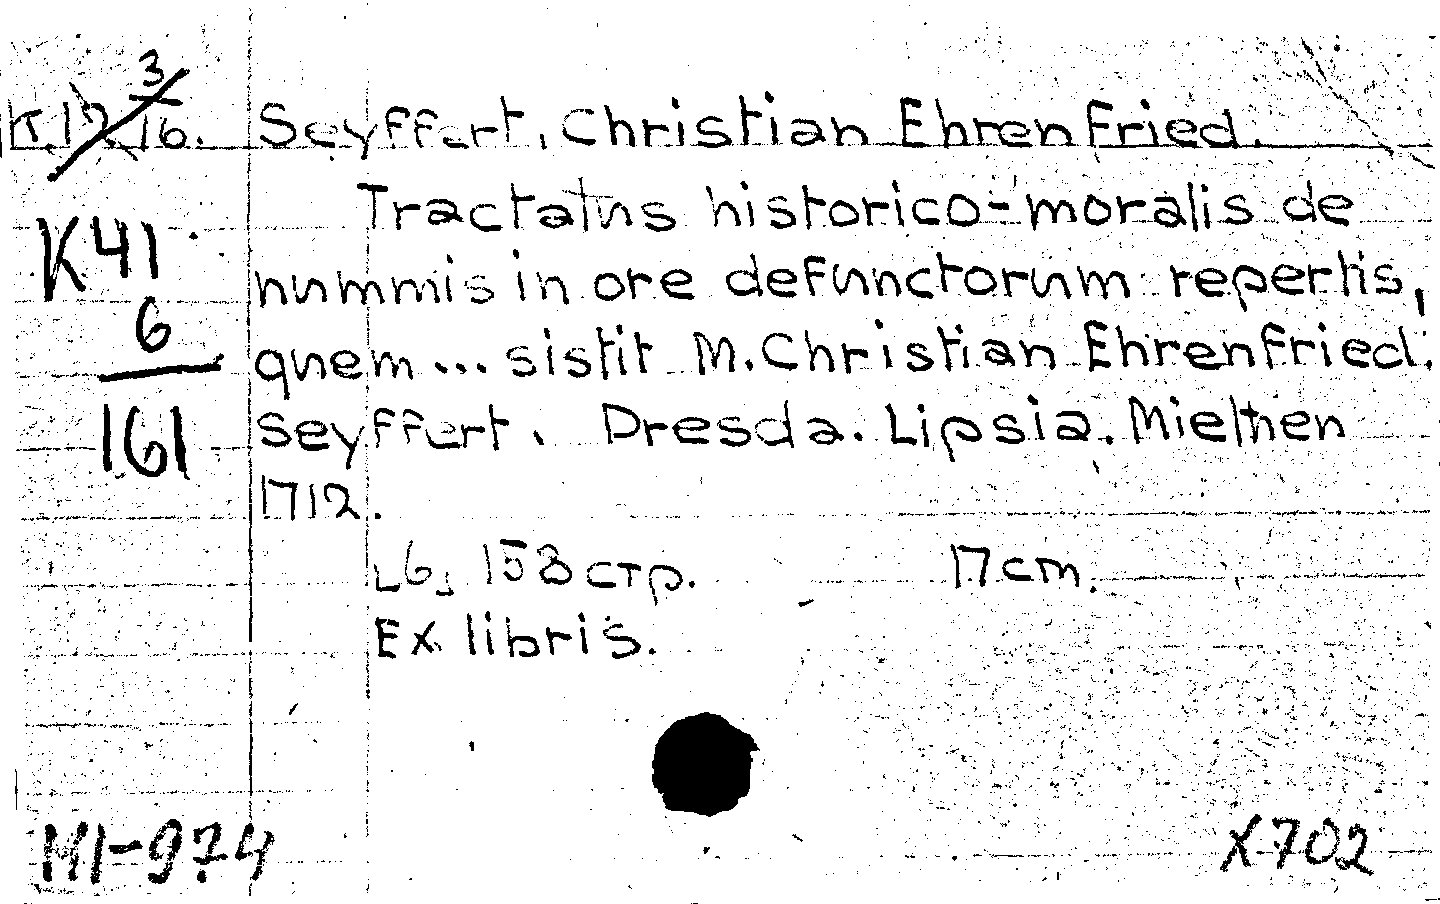 3
К.12.16. Seyffert, Christian Ehrenfried.
Tractatus historico-moralis de
nummis in ore defunctorum repertis,
quem... sistit M. Christian Ehrenfried.
Seyffert. Dresda. Lipsia. Miethen
1712.
[6], 158 стр. 17 cm.
Ex libris.
K41
6
161
HI-974
X702